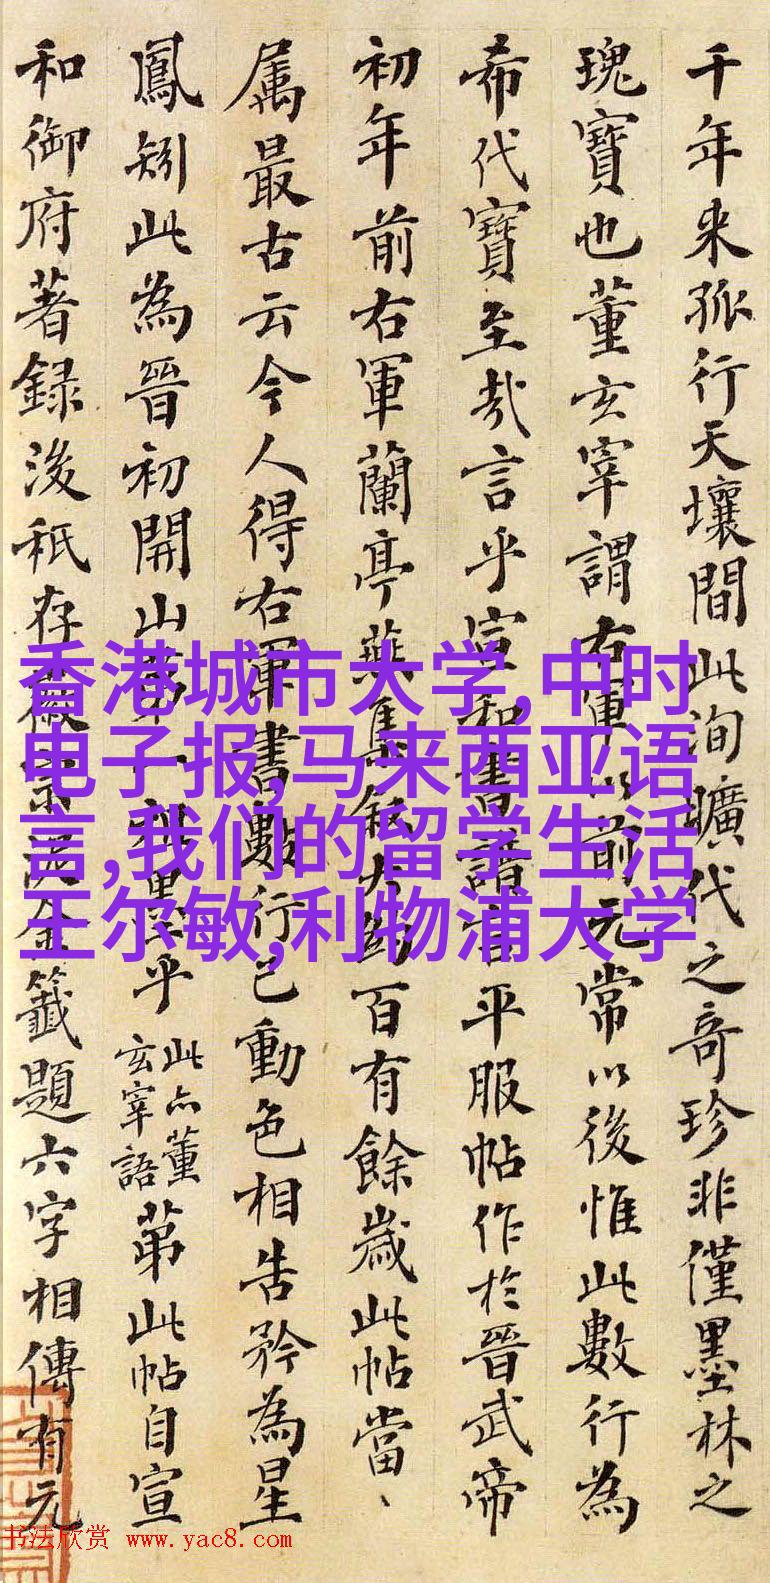 千年来孤行天壤間此洵曠代之奇珍非僅墨林之
瑰寶也董玄宰謂右軍以前元常以後惟此數行為
希代寶至哉言乎宣和書譜言平服帖作於晉武帝
初年前右軍蘭亭燕集敘大約百有餘歲此帖當、
属最古云今人得右軍書數行已動色相告矜為星
鳳矧此為晉初開山第一祖墨乎此亦董玄宰語苐此帖自宣
和御府著録後秖存徽宗泥金籤題六字相傳有元
香港城市大学,中时
电子报,马来西亚语
言,我们的留学生活
王尔敏,利物浦大学
书法欣赏 www.yac8.com